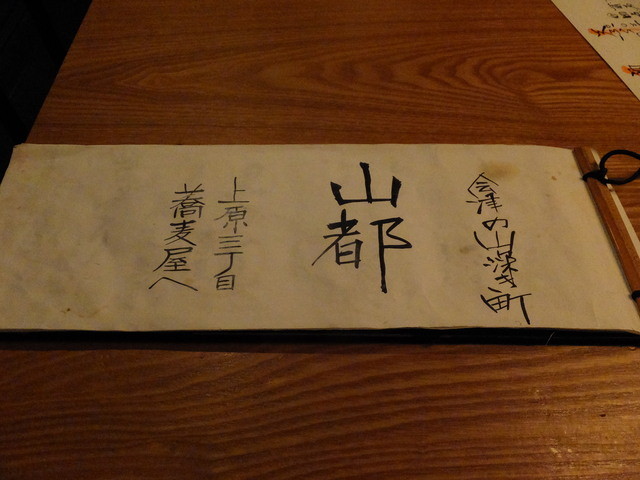 会津の山深き町
山都
上原三丁目
蕎麦屋へ